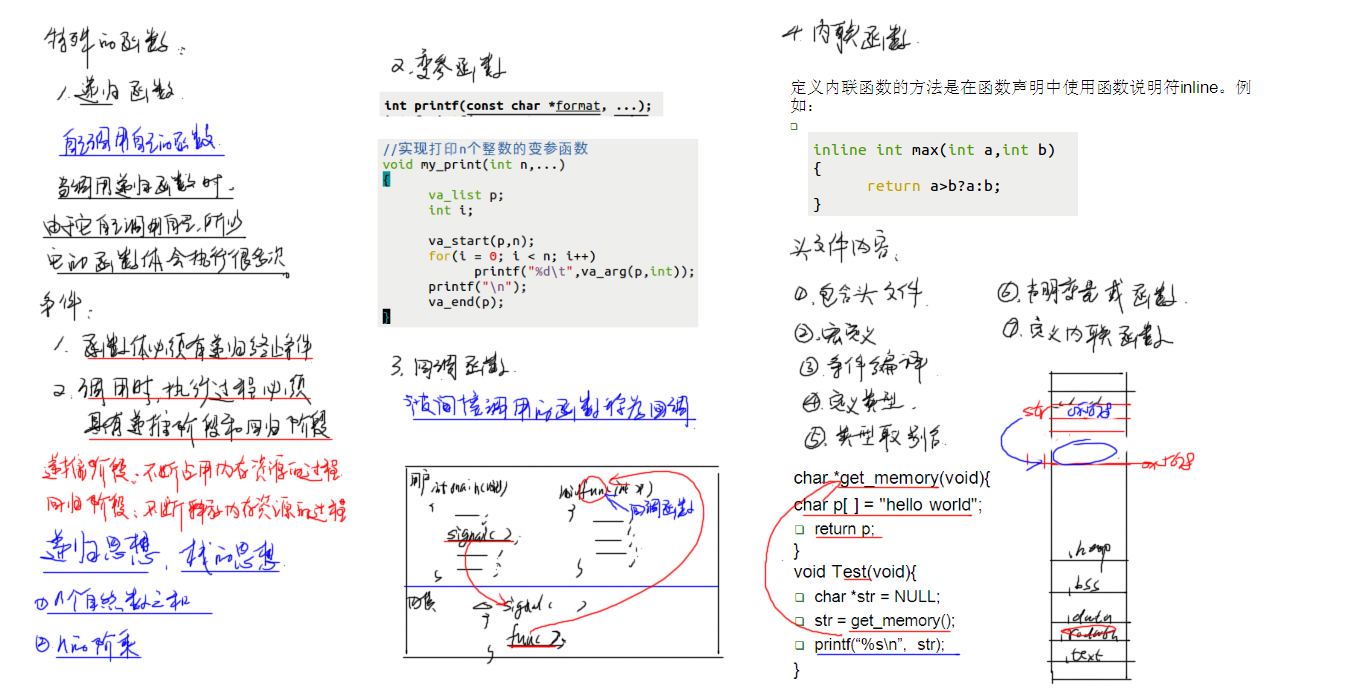 特殊的函数:
1.递归函数
自己调用自己的函数
当调用递归函数时,
由于它自己调用自己,所以
它的函数体会执行很多次。
条件:
1. 函数体必须有递归终止条件
2.调用时,执行过程必须
具有递推阶段和回归阶段
递推阶段:不断占用内存资源的过程
回归阶段:不断释放内存资源的过程
递归思想,栈的思想
①n个自然数之和
②n的阶乘
2.变参函数
int printf(const char *format, ...);
//实现打印n个整数的变参函数
void my_print(int n,...)
{
va_list p;
int i;
va_start(p,n);
for(i = 0; i < n; i++)
printf("%d\t",va_arg(p,int));
printf("\n");
va_end(p);
}
3.回调函数
被间接调用的函数称为回调
用户 int main(void)
{
signal( );
}
void func(int x)
{
回调函数
}
signal( )
{
func( );
}
4.内联函数
定义内联函数的方法是在函数声明中使用函数说明符inline。例
如:
inline int max(int a,int b)
{
return a>b?a:b;
}
头文件内容:
①.包含头文件
②.宏定义
③.条件编译
④.定义类型
⑤.类型取别名
⑥.声明变量或函数
⑦.定义内联函数
char *get_memory(void){
char p[ ] = "hello world";
return p;
}
void Test(void){
char *str = NULL;
str = get_memory();
printf(“%s\n”, str);
}
str
.heap
.bss
.data
.rodata
.text